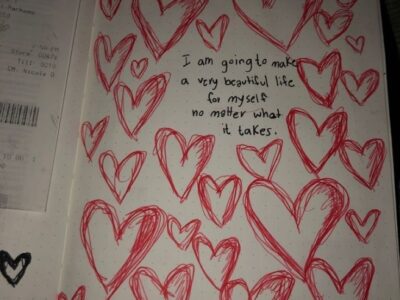 I am going to make
a very beautiful life
for myself
no matter what
it takes.